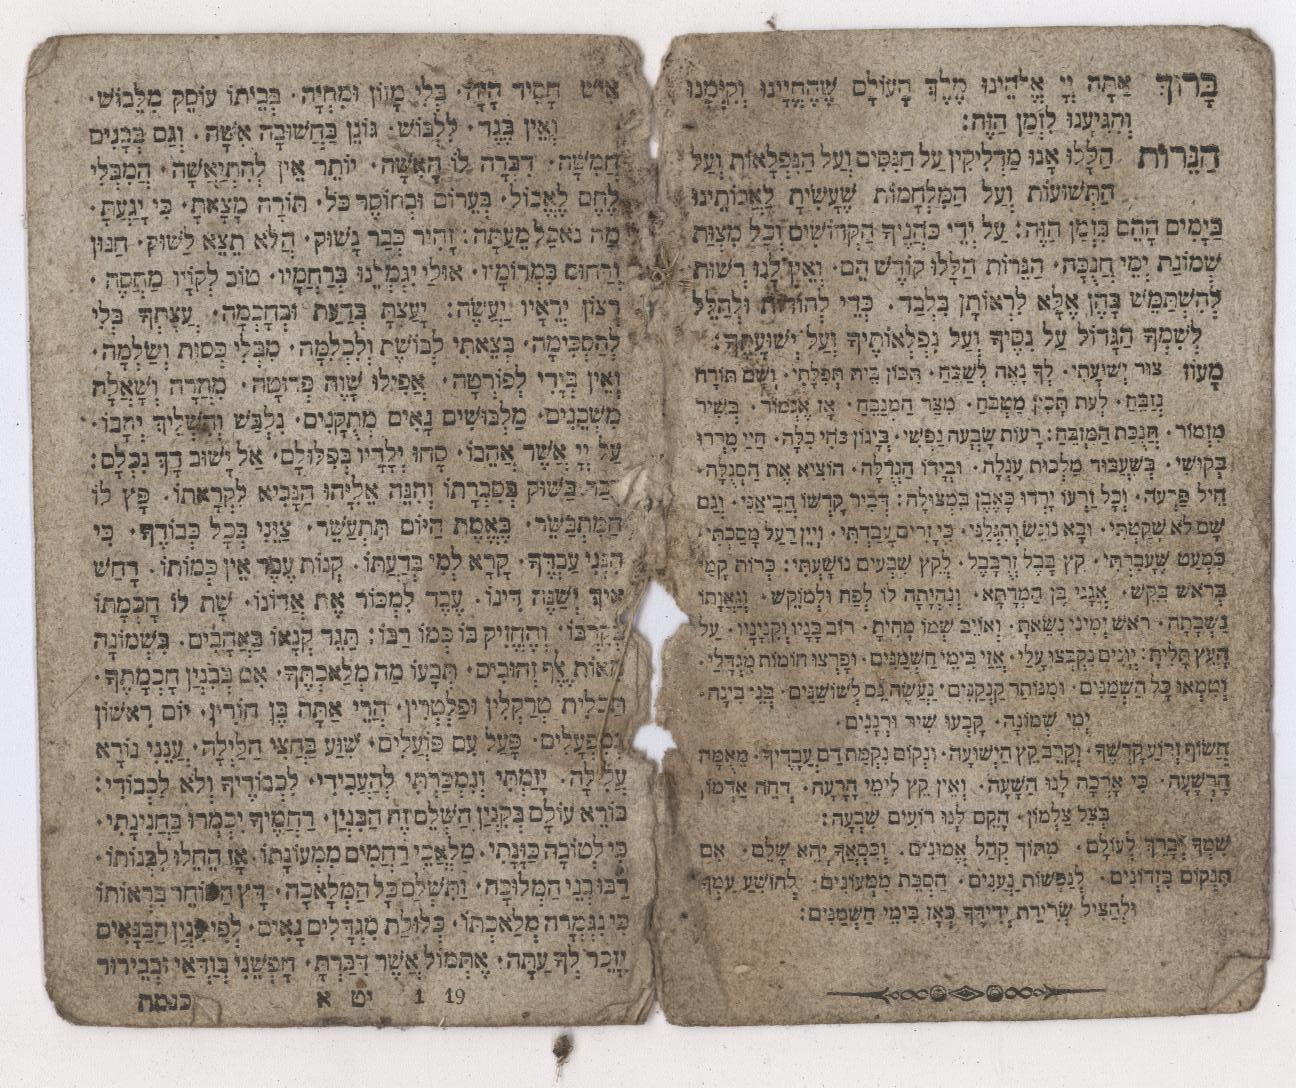 בָּרוּךְ אַתָּה יְיָ אֱלֹהֵינוּ מֶלֶךְ הָעוֹלָם שֶׁהֶחֱיָינוּ וְקִיְּמָנוּ
וְהִגִּיעָנוּ לַזְּמַן הַזֶּה:
הַנֵּרוֹת הַלָּלוּ אָנוּ מַדְלִיקִין עַל הַנִּסִּים וְעַל הַנִּפְלָאוֹת וְעַל
הַתְּשׁוּעוֹת וְעַל הַמִּלְחָמוֹת שֶׁעָשִׂיתָ לַאֲבוֹתֵינוּ
בַּיָּמִים הָהֵם בַּזְּמַן הַזֶּה: עַל יְדֵי כֹּהֲנֶיךָ הַקְּדוֹשִׁים וְכָל מִצְוַת
שְׁמוֹנַת יְמֵי חֲנֻכָּה· הַנֵּרוֹת הַלָּלוּ קוֹדֶשׁ הֵם· וְאֵין לָנוּ רְשׁוּת
לְהִשְׁתַּמֵּשׁ בָּהֶן אֶלָּא לִרְאוֹתָן בִּלְבַד· כְּדֵי לְהוֹדוֹת וּלְהַלֵּל
לְשִׁמְךָ הַגָּדוֹל עַל נִסֶּיךָ וְעַל נִפְלְאוֹתֶיךָ וְעַל יְשׁוּעָתֶךָ:
מָעוֹז צוּר יְשׁוּעָתִי· לְךָ נָאֶה לְשַׁבֵּחַ· תִּכּוֹן בֵּית תְּפִלָּתִי· וְשָׁם תּוֹדָה
נְזַבֵּחַ· לְעֵת תָּכִין מַטְבֵּחַ· מִצָּר הַמְנַבֵּחַ· אָז אֶגְמוֹר· בְּשִׁיר
מִזְמוֹר· חֲנֻכַּת הַמִּזְבֵּחַ: רָעוֹת שָׂבְעָה נַפְשִׁי· בְּיָגוֹן כֹּחִי כִלָּה· חַיַּי מֵרְרוּ
בְּקוּשִׁי· בְּשִׁעְבּוּד מַלְכוּת עֶגְלָה· וּבְיָדוֹ הַגְּדֻלָּה· הוֹצִיא אֶת הַסְּגֻלָּה·
חֵיל פַּרְעֹה· וְכָל זַרְעוֹ יָרְדוּ כְּאֶבֶן בִּמְצוּלָה: דְּבִיר קָדְשׁוֹ הֱבִיאַנִי· וְגַם
שָׁם לֹא שָׁקַטְתִּי· וּבָא נוֹגֵשׂ וְהִגְלַנִי· כִּי זָרִים עָבַדְתִּי· וְיֵין רַעַל מָסַכְתִּי·
כִּמְעַט שֶׁעָבַרְתִּי· קֵץ בָּבֶל זְרֻבָּבֶל· לְקֵץ שִׁבְעִים נוֹשַׁעְתִּי: כְּרוֹת קֹמַת
בְּרוֹשׁ בִּקֵּשׁ· אֲגָגִי בֶּן הַמְּדָתָא· וְנִהְיָתָה לוֹ לְפַח וּלְמוֹקֵשׁ· וְגַאֲוָתוֹ
נִשְׁבָּתָה· רֹאשׁ יְמִינִי נִשֵּׂאתָ· וְאוֹיֵב שְׁמוֹ מָחִיתָ· רוֹב בָּנָיו וְקִנְיָנָיו· עַל
הָעֵץ תָּלִיתָ: יְוָנִים נִקְבְּצוּ עָלַי· אֲזַי בִּימֵי חַשְׁמַנִּים· וּפָרְצוּ חוֹמוֹת מִגְדָּלַי·
וְטִמְּאוּ כָּל הַשְּׁמָנִים· וּמִנּוֹתַר קַנְקַנִּים· נַעֲשָׂה נֵס לְשׁוֹשַׁנִּים· בְּנֵי בִינָה·
יְמֵי שְׁמוֹנָה· קָבְעוּ שִׁיר וּרְנָנִים·
חֲשׂוֹף זְרוֹעַ קָדְשֶׁךָ· וְקָרֵב קֵץ הַיְשׁוּעָה· וּנְקוֹם נִקְמַת דַּם עֲבָדֶיךָ· מֵאֻמָּה
הָרְשָׁעָה· כִּי אָרְכָה לָנוּ הַשָּׁעָה· וְאֵין קֵץ לִימֵי הָרָעָה· דְּחֵה אַדְמוֹן
בְּצֵל צַלְמוֹן· הָקֵם לָנוּ רוֹעִים שִׁבְעָה:
שִׁמְךָ יְבָרֵךְ לְעוֹלָם· מִתּוֹךְ קְהַל אֱמוּנִים· וְכִסְאֲךָ יְהֵא שָׁלֵם· אִם
תִּנְקוֹם בְּזֵדוֹנִים· לִנְפָשׁוֹת נַעֲנִים· הַסְכֵּת מִמְּעוֹנִים· לְהוֹשִׁעַ עַמְּךָ
וּלְהַצִּיל שְׂרִידַת יְדִידֶךָ כְּאָז בִּימֵי חַשְׁמַנִּים:
אִישׁ חָסִיד הָיָה· בְּלִי מָזוֹן וּמִחְיָה· בְּבֵיתוֹ עוֹסֵק מִלְּבוּשׁ·
וְאֵין בֶּגֶד· לִלְבּוֹשׁ· גּוֹנֵן בַּחֲשׁוּבָה אִשָּׁה· וְגַם בְּבָנִים
חֲמִשָּׁה· דִּבְּרָה לוֹ הָאִשָּׁה· יוֹתֵר אֵין לְהִתְיָאֲשָׁה· הַמִבְּלִי
לֶחֶם לֶאֱכוֹל· בְּעֵרוֹם וּבְחוֹסֶר כֹּל· תּוֹרָה מָצָאתָ· כִּי יָגַעְתָּ·
מַה נֹּאכַל מֵעַתָּה: זָהִיר כְּבַר נָשׁוּק· הֲלֹא תֵצֵא לַשּׁוּק· חַנּוּן
וְרַחוּם בִּמְרוֹמָיו· אוּלַי יִגְמְלֵנוּ בְּרַחֲמָיו· טוֹב לְקוָֹיו מַחֲסֶה·
רְצוֹן יְרֵאָיו יַעֲשֶׂה: יָעַצְתָּ בְּדַעַת וּבְחָכְמָה· עֲצָתְךָ בְּלִי
לְהַסְכִּימָה· בְּצֵאתִי לְבוֹשֶׁת וְלִכְלִמָּה· מִבְּלִי כְּסוּת וְשַׂלְמָה·
וְאֵין בְּיָדִי לְפוֹרְטָה· אֲפִילוּ שָׁוֶה פְּרוּטָה· מִהֲרָה וְשָׁאֲלָה
מִשְּׁכֵנִים· מַלְבּוּשִׁים נָאִים מְתֻקָּנִים· נִלְבַּשׁ וְהִשְׁלִיךְ יְהָבוֹ·
עַל יְיָ אֲשֶׁר אֲהֵבוֹ· סָחוּ יְלָדָיו בְּפִלּוּלָם· אַל יָשׁוּב דַּךְ נִכְלָם:
עָבַר בַּשּׁוּק בְּסִבְרָתוֹ וְהִנֵּה אֵלִיָּהוּ הַנָּבִיא לִקְרָאתוֹ· פָּץ לוֹ
הַמִּתְבַּשֵּׂר· בֶּאֱמֶת הַיּוֹם תִּתְעַשֵּׁר· צַוֵּנִי בְּכָל כְּבוֹדֶךָ· כִּי
הִנְנִי עַבְדֶּךָ· קָרָא לְמִי בְּדַעְתּוֹ· קְנוֹת עֶבֶד אֵין כְּמוֹתוֹ· דָּחַשׁ
אֵיךְ יְשַׁנֶּה דִּינוֹ· עֶבֶד לִמְכּוֹר אֶת אֲדוֹנוֹ· שָׁת לוֹ חָכְמָתוֹ
בְּקִרְבּוֹ· וְהֶחֱזִיק בּוֹ כְּמוֹ רַבּוֹ: תַּגָּר קְנָאוֹ בַּאֲהָבִים· בִּשְׁמוֹנָה
מֵאוֹת אֶלֶף זְהוּבִים· תְּבָעוֹ מַה מְּלַאכְתֶּךָ· אִם בְּבִנְיָן חָכְמָתֶךָ·
תַּכְלִית טְרַקְלִין וּפַלְטְרִין· הֲרֵי אַתָּה בֶּן חוֹרִין· יוֹם רִאשׁוֹן
בְּמִפְעָלִים· פָּעַל עִם פּוֹעֲלִים· שִׁוַּע בַּחֲצִי הַלַּיְלָה· עֲנֵנִי נוֹרָא
עֲלִילָה· יָזַמְתִּי וְנִמְכַּרְתִּי לְהַעֲבִידִי· לִכְבוֹדֶיךָ וְלֹא לִכְבוֹדִי:
בּוֹרֵא עוֹלָם בְּקִנְיַן הַשְׁלֵם זֶה הַבִּנְיָן· רַחֲמֶיךָ יִכְמְרוּ בַּחֲנִינָתִי·
כִּי לְטוֹבָה כַּוָּנָתִי· מַלְאֲכֵי רַחֲמִים מִמְּעוֹנָתוֹ· אָז הֵחֵלּוּ לִבְנוֹתוֹ·
רַבּוּ בְנֵי הַמְּלוּכָה· וַתִּשְׁלַם כָּל הַמְּלָאכָה· דָּץ הַסּוֹחֵר בִּרְאוֹתוֹ
כִּי נִגְמְרָה מְלַאכְתּוֹ· כְּלוּלַת מִגְדָּלִים נָאִים· לְפִי עִנְיַן הַבַּנָּאִים
יִזָּכֵר לְךָ עַתָּה· אֶתְמוֹל אֲשֶׁר דִּבַּרְתָּ· חָפְשֵׁנִי בְּוַדַּאי וּבְבֵירוּר
19 1 יט א כנמת